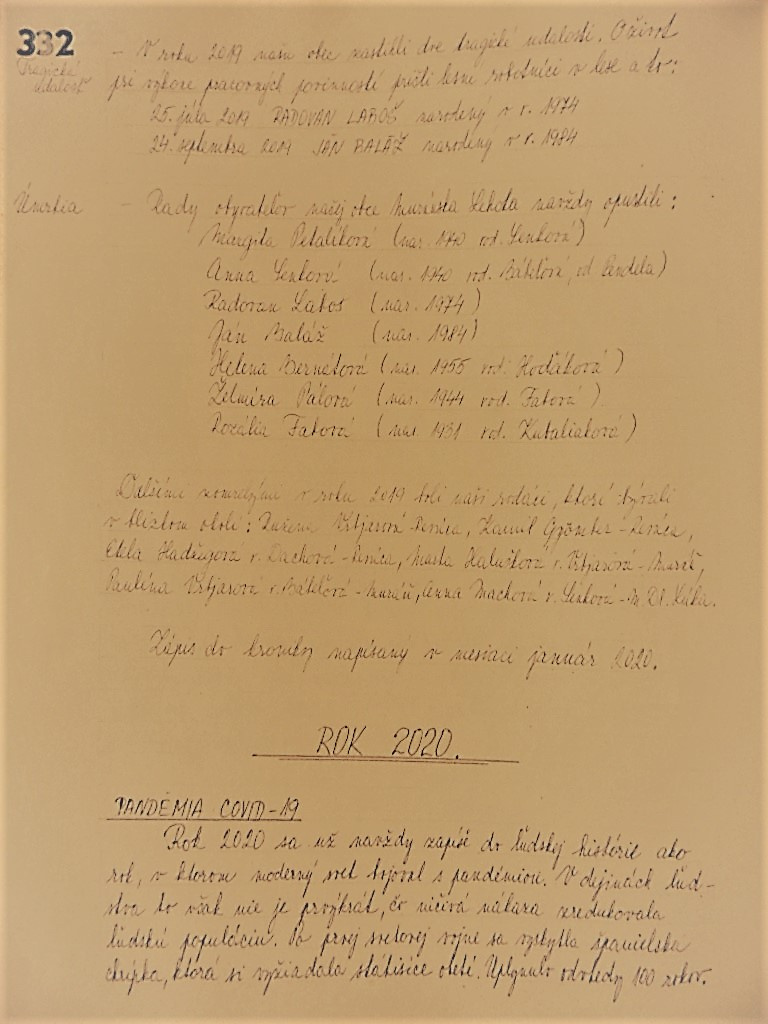 332
Tragické
udalosti
- V roku 2019 našu obec zastihli dve tragické udalosti. O život
pri výkone pracovných povinností prišli lesní robotníci v lese a to:
25. júla 2019 RADOVAN LABOŠ narodený v r. 1974
24. septembra 2019 JÁN BALÁŽ narodený v r. 1984
Úmrtia
- Rady obyvateľov našej obce Muránska Lehota navždy opustili:
Margita Petaliková (nar. 1940 rod. Senková)
Anna Senková (nar. 1940 rod. Bábeľová, od Pandela)
Radovan Laboš (nar. 1974)
Ján Baláž (nar. 1984)
Helena Bernátová (nar. 1955 rod. Hodáková)
Želmíra Pálová (nar. 1944 rod. Fatová)
Rozália Fatová (nar. 1931 rod. Kubaliaková)
Ďalšími zomrelými v roku 2019 boli naši rodáci, ktorí bývali
v blízkom okolí: Ružena Vrbjarová - Revúca, Kamil - Revúca,
Etela Hadžugová r. Dachová - Revúca, Marta Halušková r. Vrbjarová - Muráň,
Paulína Vrbjarová r. Bábeľová - Muráň, Anna Macková r. Senková - M. Dl. Lúka.
Zápis do kroniky napísaný v mesiaci január 2020.
ROK 2020.
PANDÉMIA COVID-19
Rok 2020 sa už navždy zapíše do ľudskej histórie ako
rok, v ktorom moderný svet bojoval s pandémiou. V dejinách ľud-
stva to však nie je prvýkrát, čo ničivá nákaza zredukovala
ľudskú populáciu. Po prvej svetovej vojne sa vyskytla španielska
chrípka, ktorá si vyžiadala státisíce obetí. Uplynulo odvtedy 100 rokov.